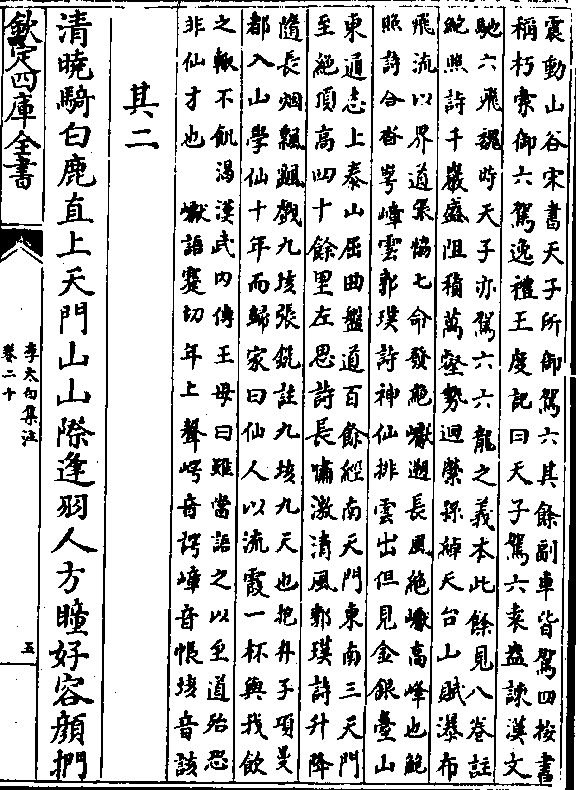 震動山谷宋書天子所御駕六其餘副車皆駕四按書
稱朽索御六駕逸禮王度記曰天子駕六袁盎諫漢文
馳六飛魏時天子亦駕六六龍之義本此餘見八卷註
鮑照詩千巖盛阻積萬壑勢迴縈孫綽天台山賦瀑布
飛流以界道張協七命發絶巘遡長風絶巘高峰也鮑
照詩合沓崿嶂雲郭璞詩神仙排雲出但見金銀臺山
東通志上泰山屈曲盤道百餘經南天門東南三天門
至絶頂高四十餘里左思詩長嘯激清風郭璞詩升降
隨長烟飄颻戲九垓張銑註九垓九天也抱朴子項曼
都入山學仙十年而歸家曰仙人以流霞一杯與我飲
之輒不飢渴漢武内傳王母曰雖當語之以至道殆恐
非仙才也　巘語蹇切年上聲崿音諤嶂音帳垓音該
其二
清曉騎白鹿直上天門山山際逢羽人方瞳好容顔捫
欽定四庫全書
李太白集注
卷二十
五